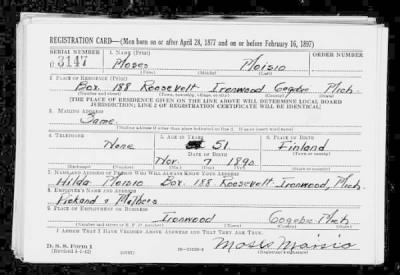 REGISTRATION CARD—(Men born on or after April 28, 1877 and on or before February 16, 1897)
SERIAL NUMBER 1. NAME (Print) ORDER NUMBER
U 3147 Moses Moisio
(First) (Middle) (Last)
2. PLACE OF RESIDENCE (Print)
Box. 188 Roosevelt Ironwood Gogebic Mich.
(Number and street) (Town, township, village, or city) (County) (State)
[THE PLACE OF RESIDENCE GIVEN ON THE LINE ABOVE WILL DETERMINE LOCAL BOARD
JURISDICTION; LINE 2 OF REGISTRATION CERTIFICATE WILL BE IDENTICAL]
3. MAILING ADDRESS
Same.
[Mailing address if other than place indicated on line 2. If same insert word same]
4. TELEPHONE 5. AGE IN YEARS 6. PLACE OF BIRTH
None 51 Finland
DATE OF BIRTH (Town or county)
Nov. 7 1890
(Exchange) (Number) (Mo.) (Day) (Yr.) (State or country)
7. NAME AND ADDRESS OF PERSON WHO WILL ALWAYS KNOW YOUR ADDRESS
Hilda Moisio Box. 188. Roosevelt Ironwood, Mich.
8. EMPLOYER'S NAME AND ADDRESS
Pickand & Mathers
9. PLACE OF EMPLOYMENT OR BUSINESS
Ironwood Gogebic Mich
(Number and street or R. F. D. number) (Town) (County) (State)
I AFFIRM THAT I HAVE VERIFIED ABOVE ANSWERS AND THAT THEY ARE TRUE.
D. S. S. Form 1
(Revised 4-1-42) (over)
Moses Moisio